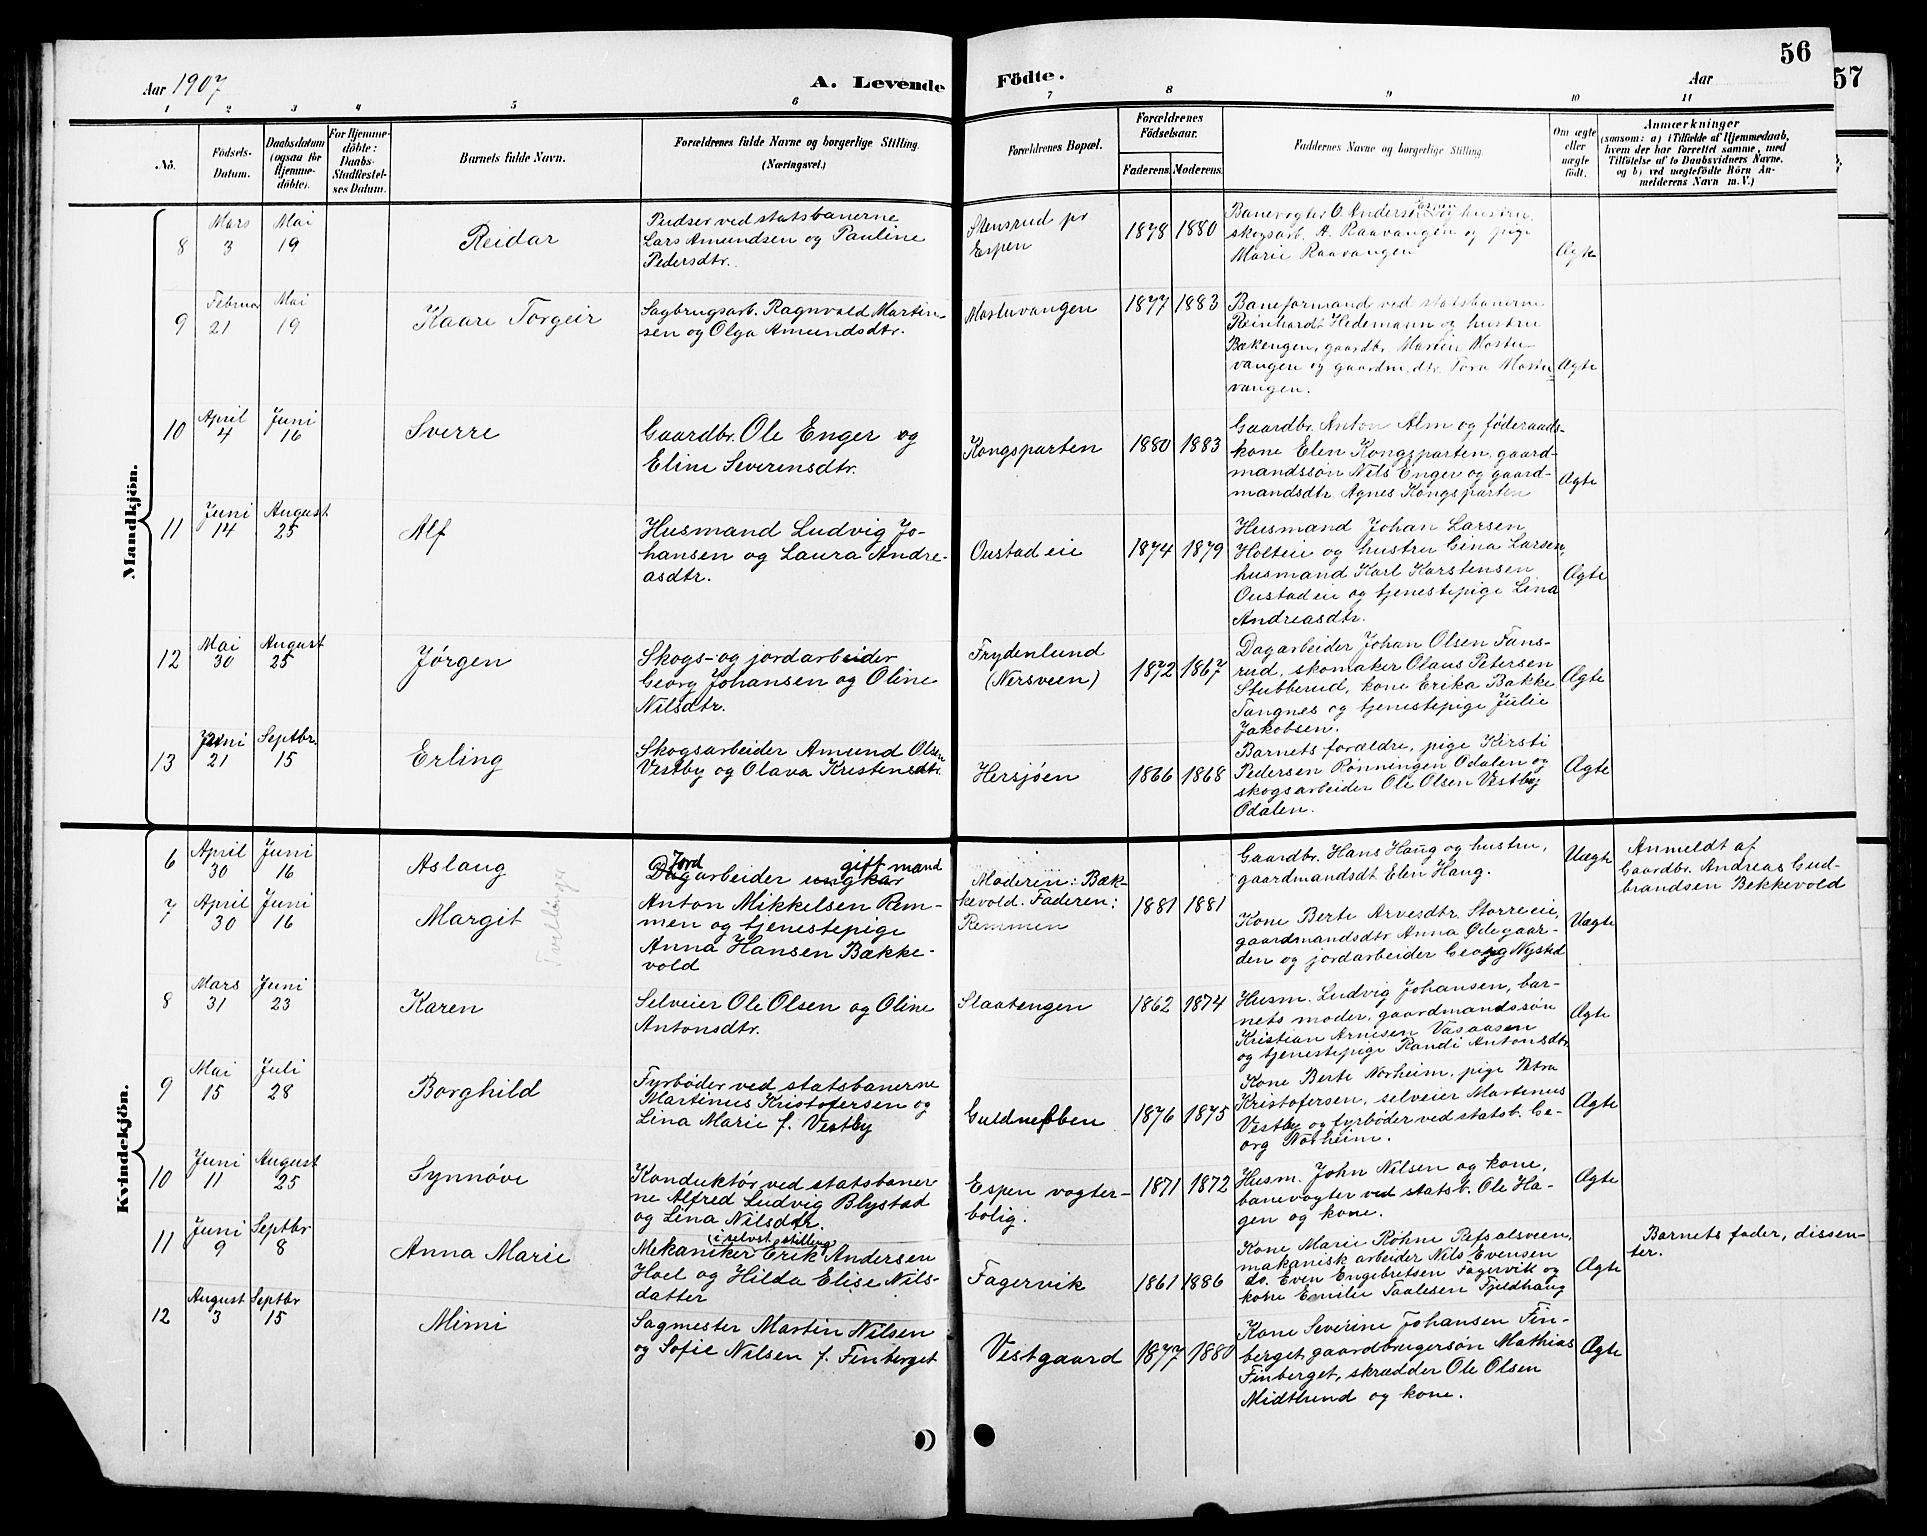 56
57
Aar 1907
A. Levende
Födte.
Aar
1 2 3 4 5 6 7 8 9 10 11
No.
Födsels-
Datum.
Daabsdatum
(ogsaa för
Hjemme-
döbte).
For Hjemme-
döbte:
Daabs-
Stadfæstel-
ses Datum.
Barnets fulde Navn.
Forældrenes fulde Navne og borgerlige Stilling.
(Næringsvei.)
Forældrenes Bopæl.
Forældrenes
Födselsaar.
Faderens. Moderens.
Faddernes Navne og borgerlige Stilling.
Om ægte
eller
uægte
födt.
Anmærkninger
(saasom: a) i Tilfælde af Hjemmedaab,
hvem der har forrettet samme, med
Tilföielse af to Daabsvidners Navne.
og b) ved uægtefödte Börn An-
melderens Navn m. V.)
Mandkjön.
8
Mars
3
Mai
19
Reidar
Pudser ved statsbanerne
Lars Amundsen og Pauline
Pedersdtr.
Stensrud pr
Espen
1878 1880
Banevogter O. Anders og hustru,
skogsarb. A. Raavangen og pige
Marie Raavangen
Ægte
9
Februar
21
Mai
19
Kaare Torgeir
Sagbrugsarb. Ragnvald Martin-
sen og Olga Amundsdtr.
Mostuvangen
1877 1883
Baneformand ved statsbanerne
Reinhardt Hedemann og hustru
Bækengen, gaardbr. Martin Mostu-
vangen og gaardm.dtr. Tora Mostu-
vangen.
Ægte
10
April
4
Juni
16
Sverre
Gaardbr. Ole Enger og
Eline Severensdtr.
Kongsparten
1880 1883
Gaardbr. Anton Alm og føderaads-
kone Elen Kongsparten, gaard-
mandssøn Nils Enger og gaard-
mandsdtr Agnes Kongsparten
Ægte
11
Juni
14
August
25
Alf
Husmand Ludvig Jo-
hansen og Laura Andre-
asdtr.
Oustad eie
1874 1879
Husmand Johan Larsen
Holteie og hustru Gina Larsen,
husmand Karl Karstensen
Oustad eie og tjenestepige Lina
Andreasdtr.
Ægte
12
Mai
30
August
25
Jørgen
Skogs- og jordarbeider
Georg Johansen og Oline
Nilsdtr.
Frydenlund
(Nersveen)
1872 1867
Dagarbeider Johan Olsen Fans-
rud, skomaker Olaus Petersen
Stubberud, kone Erika Bakke
Tangnes og tjenestepige Julie
Jakobsen.
Ægte
13
Juni
21
Septbr.
15
Erling
Skogsarbeider Amund Olsen
Vestby og Olava Kristensdtr.
Hersjøen
1866 1868
Barnets forældre, pige Kirsti
Pedersen Rønningen Odalen og
skogsarbeider Ole Olsen Vestby
Odalen.
Ægte
Kvindekjön.
6
April
30
Juni
16
Aslaug
Jord gift mand
Dagarbeider ungkar
Anton Mikkelsen Rem-
men og tjenestepige
Anna Hansen Bække-
vold
Moderen: Bæk-
kevold. Faderen:
Remmen
1881 1881
Gaardbr. Hans Haug og hustru,
gaardmandsdt Elen Haug.
Uægte
Anmeldt af
Gaardbr. Andreas Gud-
brandsen Bekkevold
7
April
30
Juni
16
Margit
Tvillinger
Kone Berte Arvesdtr. Storreeie,
gaardmandsdtr Anna Ødegaar-
den og jordarbeider Georg Nystad
Uægte
8
Mars
31
Juni
23
Karen
Selveier Ole Olsen og Oline
Antonsdtr.
Slaatengen
1862 1874
Husm. Ludvig Johansen, bar-
nets moder, gaardmandssøn
Kristian Arnesen Vasaasen
og tjenestepige Randi Antonsdtr
Ægte
9
Mai
15
Juli
28
Borghild
Fyrbøder ved statsbanerne
Martinus Kristofersen og
Lina Marie f. Vestby
Guldnebben
1876 1875
Kone Berte Norheim, pige Petra
Kristofersen, selveier Martinus
Vestby og fyrbøder ved statsb. Ge-
org Notheim.
Ægte
10
Juni
11
August
25
Synnøve
Konduktør ved statsbaner-
ne Alfred Ludvig Blystad
og Lina Nilsdtr.
Espen vogter-
bolig.
1871 1872
Husm. John Nilsen og kone,
banevogter ved statsb. Ole Ha-
gen og kone.
Ægte
11
Juni
9
Septbr
8
Anna Marie
(i selvst. stilling)
Mekaniker Erik Andersen
Hoel og Hilda Elise Nils-
datter
Fagervik
1861 1886
Kone Marie Røhne Refsalsveen,
makanisk arbeider Nils Evensen
do. Even Engebretsen Fagervik og
kone Emilie Taalesen Fjeldhaug
Ægte
Barnets fader, dissen-
ter.
12
August
3
Septbr
15
Mimi
Sagmester Martin Nilsen
og Sofie Nilsen f. Finberget
Vestgaard
1877 1880
Kone Severine Johansen Fin-
berget, gaardbrugersøn Mathias
Finberget, skrædder Ole Olsen
Midtlund og kone.
Ægte